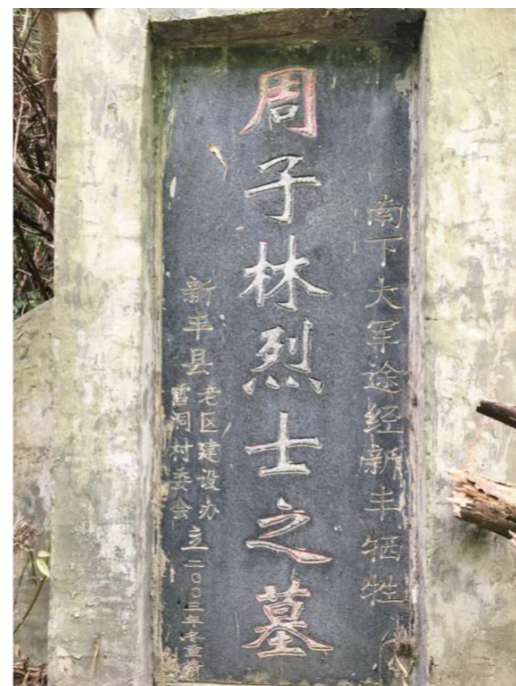 南下大军途经新丰牺牲
周子林烈士之墓
新丰县老区建设办
雪洞村委会
立二〇〇三年冬重